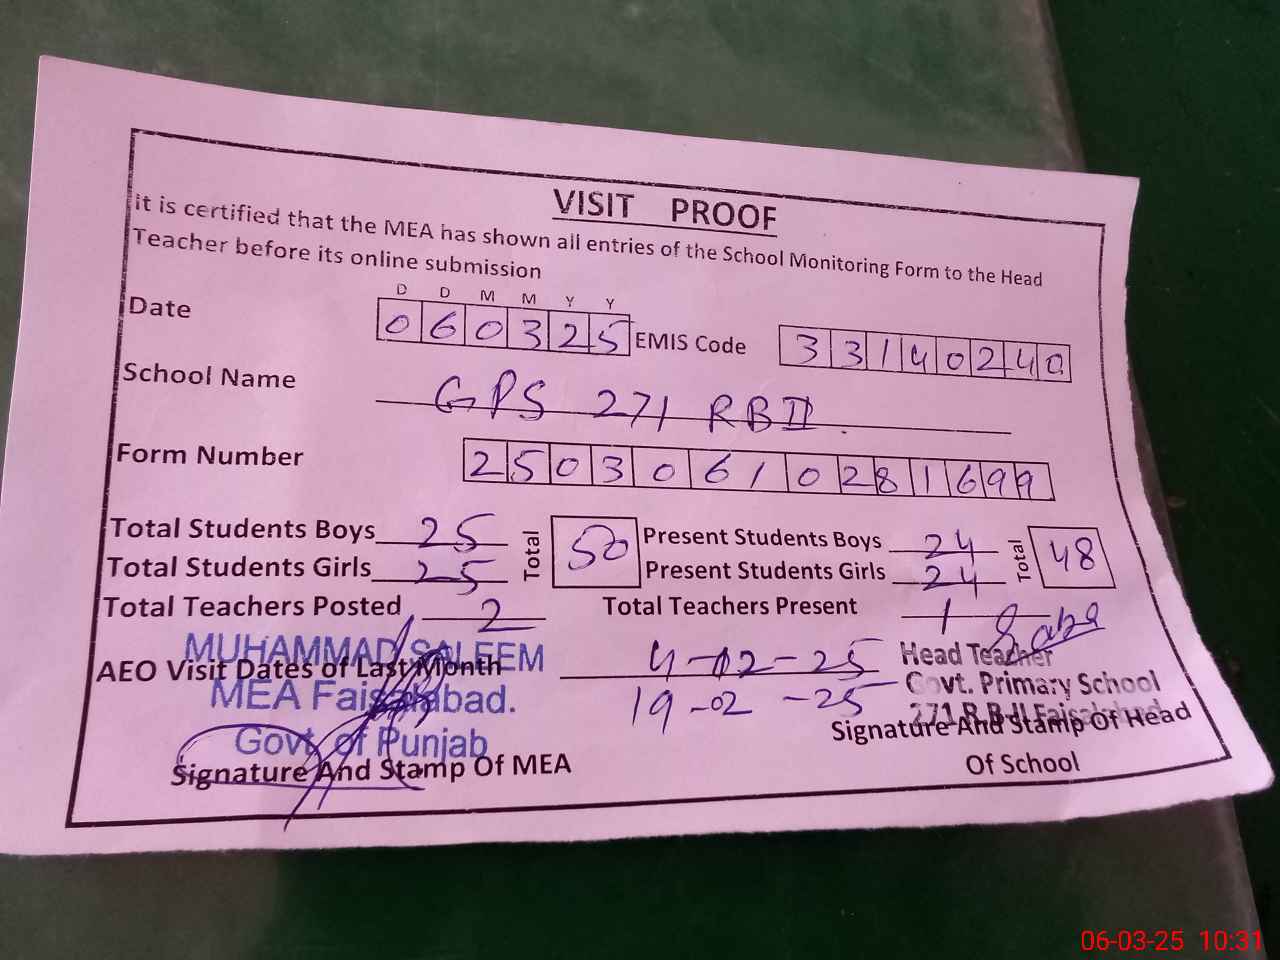 VISIT PROOF
it is certified that the MEA has shown all entries of the School Monitoring Form to the Head
Teacher before its online submission
D D M M Y Y
Date 0 6 0 3 2 5 EMIS Code 3 3 1 4 0 2 4 0
School Name GPS 271 RB II.
Form Number 2 5 0 3 0 6 1 0 2 8 1 6 9 9
Total Students Boys 25 Total 50 Present Students Boys 24 Total 48
Total Students Girls 25 Present Students Girls 24
Total Teachers Posted 2 Total Teachers Present 1
MUHAMMAD SALEEM
AEO Visit Dates of Last Month 4-02-25
19-02-25
MEA Faisalabad.
Govt. of Punjab
Signature And Stamp Of MEA
Saba
Head Teacher
Govt. Primary School
271 R.B-II Faisalabad
Signature And Stamp Of Head
Of School
06-03-25 10:31